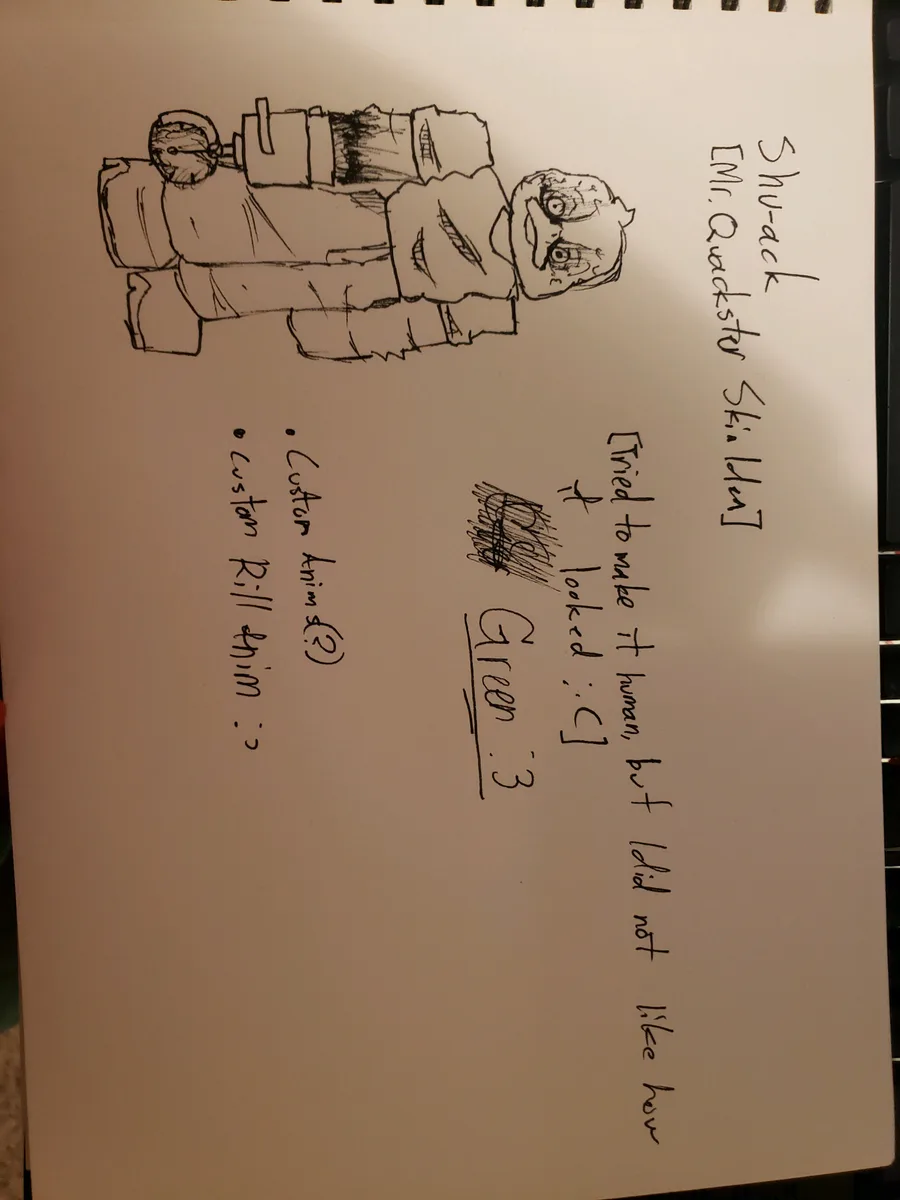 Shu-ack
[Mr. Quackster Skin Idea]
[Tried to make it human, but I did not like how
it looked :C]
Green :3
• Custom Anims(?)
• Custom Kill Anim :>